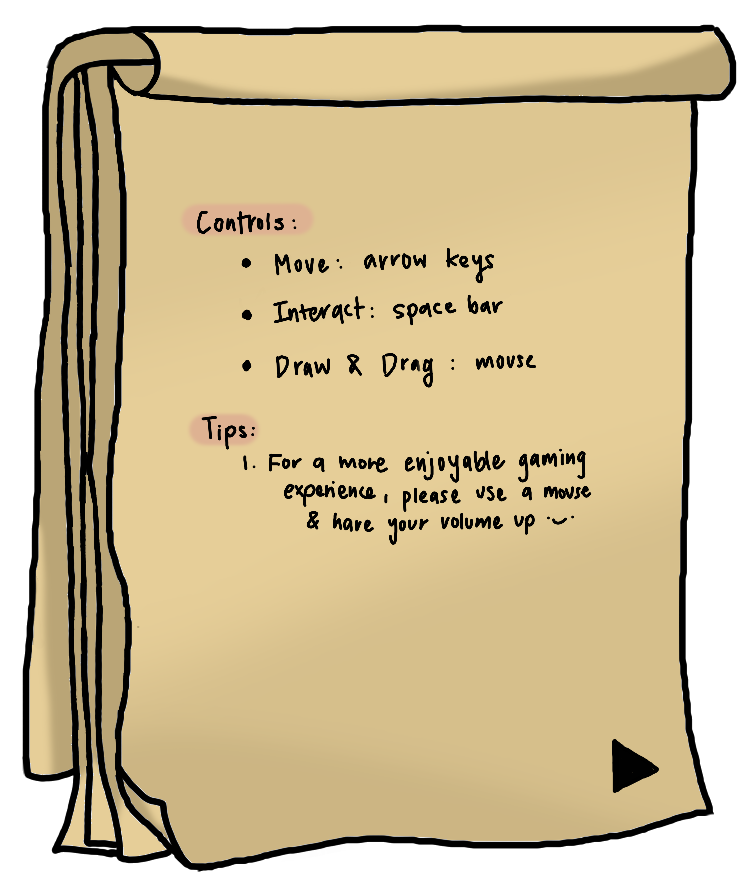 Controls:
• Move: arrow keys
• Interact: space bar
• Draw & Drag: mouse
Tips:
1. For a more enjoyable gaming
experience, please use a mouse
& have your volume up ·‿·